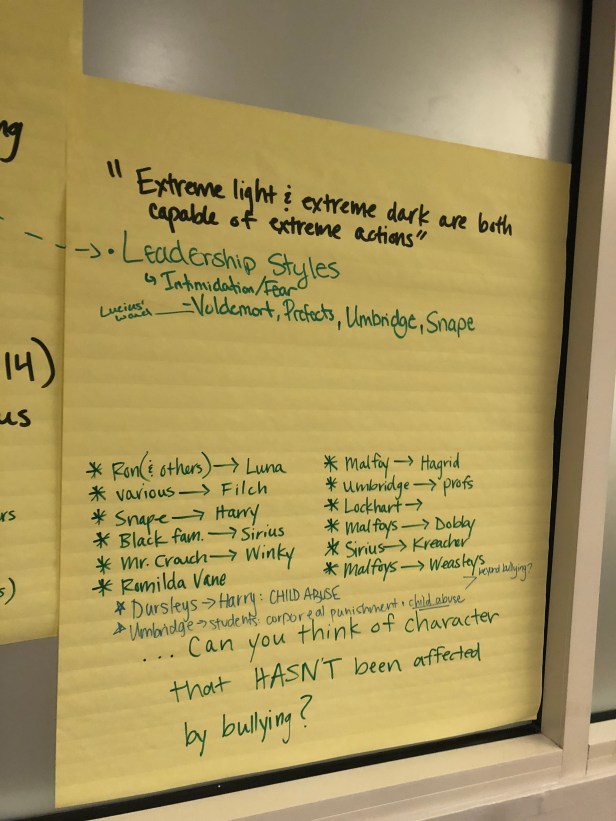 ng
14)
us
rs
s)
" Extreme light & extreme dark are both
capable of extreme actions"
- - -> • Leadership Styles
↳ Intimidation/Fear
Lucius'
- Voldemort, Prefects, Umbridge, Snape
* Ron(& others) → Luna
* various → Filch
* Snape → Harry
* Black fam. → Sirius
* Mr. Crouch → Winky
* Romilda Vane
* Malfoy → Hagrid
* Umbridge → profs
* Lockhart →
* Malfoys → Dobby
* Sirius → Kreacher
* Malfoys → Weasleys
beyond bullying?
* Dursleys → Harry: CHILD ABUSE
* Umbridge → students: corporeal punishment • child abuse
... Can you think of character
that HASN'T been affected
by bullying?